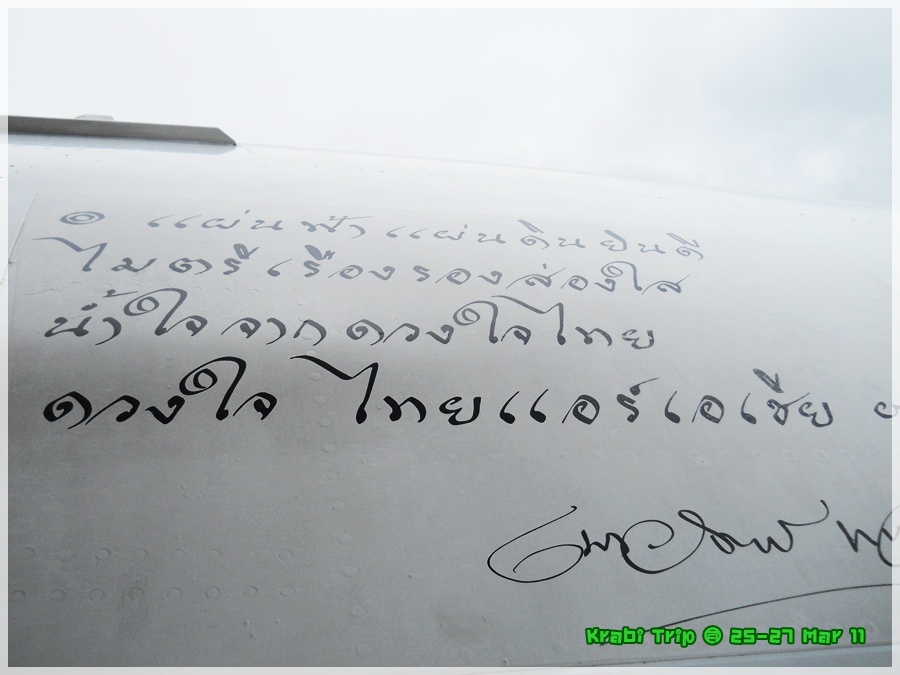 ๏ แผ่นฟ้าแผ่นดินยินดี
ไมตรีเรืองรองส่องใส
น้ำใจจากดวงใจไทย
ดวงใจ ไทยแอร์เอเชีย
Krabi Trip @ 25-27 Mar 11